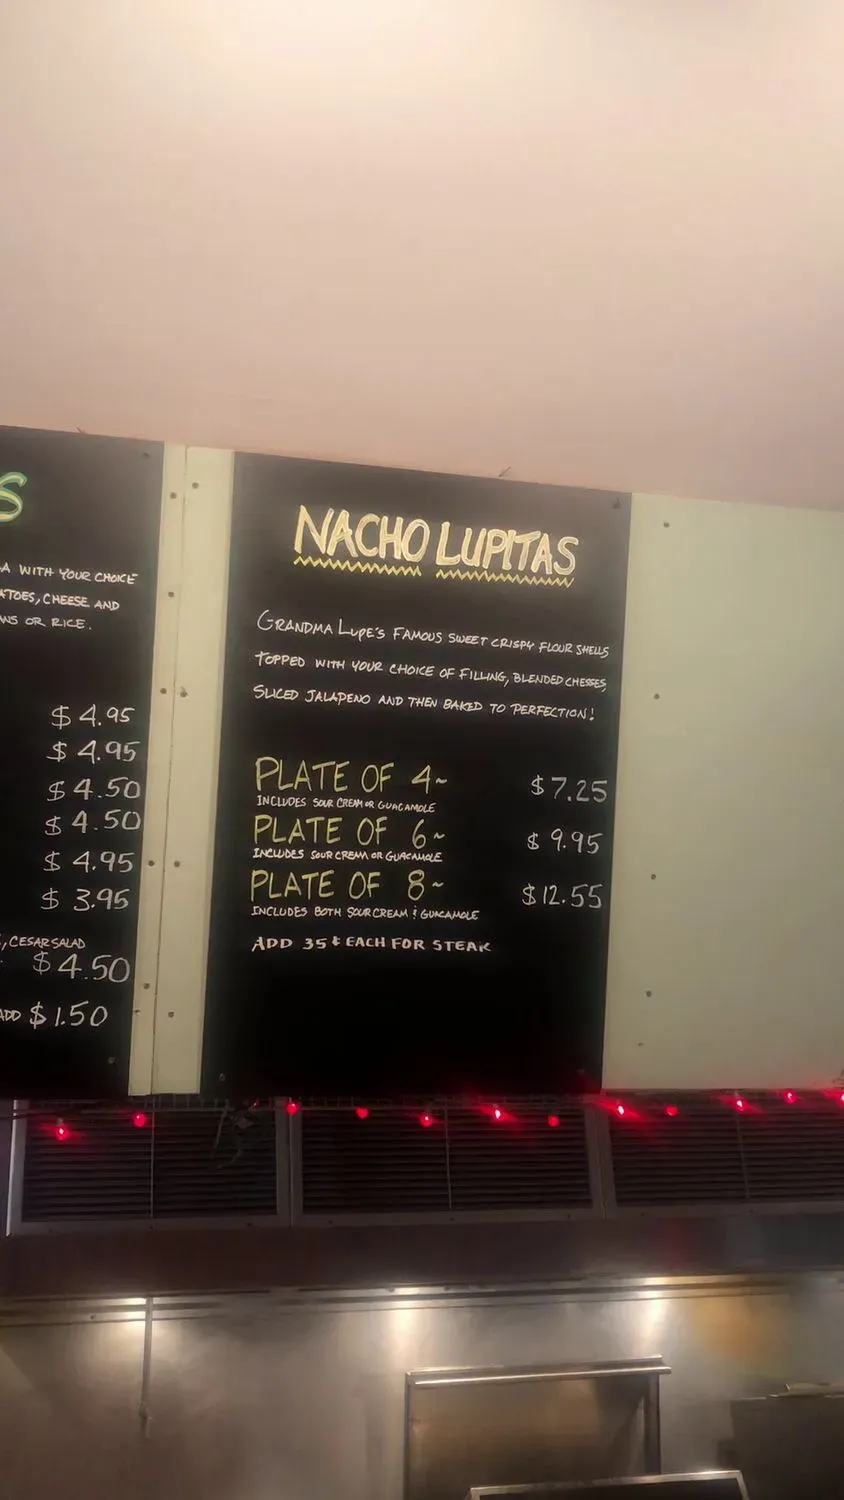 S
A WITH YOUR CHOICE
ATOES, CHEESE AND
NS OR RICE.
$ 4.95
$ 4.95
$ 4.50
$ 4.50
$ 4.95
$ 3.95
, CESAR SALAD
$ 4.50
ADD $ 1.50
NACHO LUPITAS
GRANDMA LUPE'S FAMOUS SWEET CRISPY FLOUR SHELLS
TOPPED WITH YOUR CHOICE OF FILLING, BLENDED CHESSES,
SLICED JALAPENO AND THEN BAKED TO PERFECTION!
PLATE OF 4~ $ 7.25
INCLUDES SOUR CREAM OR GUACAMOLE
PLATE OF 6~ $ 9.95
INCLUDES SOUR CREAM OR GUACAMOLE
PLATE OF 8~ $ 12.55
INCLUDES BOTH SOUR CREAM & GUACAMOLE
ADD 35¢ EACH FOR STEAK